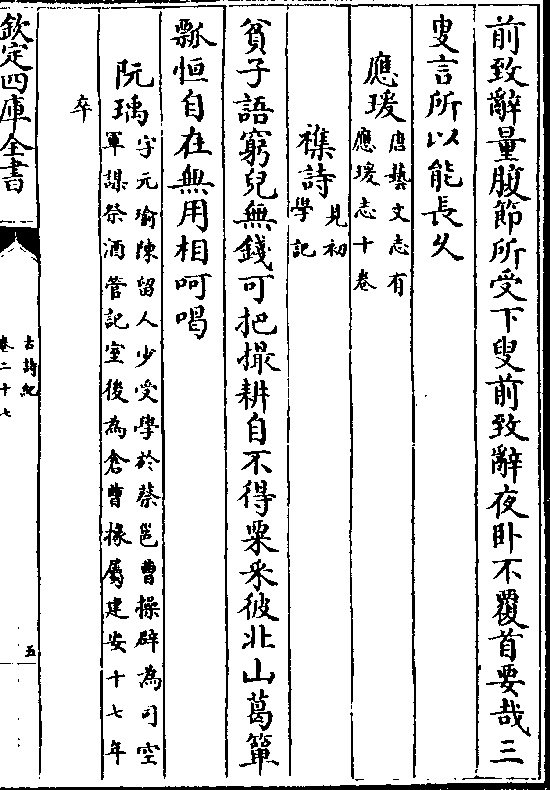 前致辭量腹節所受下叟前致辭夜卧不覆首要哉三
叟言所以能長久
應瑗唐藝文志有
應瑗志十卷
襍詩見初
學記
貧子語窮兒無錢可把撮耕自不得粟采彼北山葛簞
瓢恒自在無用相呵喝
阮瑀字元瑜陳留人少受學於蔡邕曹操辟為司空
軍謀祭酒管記室後為倉曹掾屬建安十七年
卒
欽定四庫全書
古詩紀
卷二十七
五